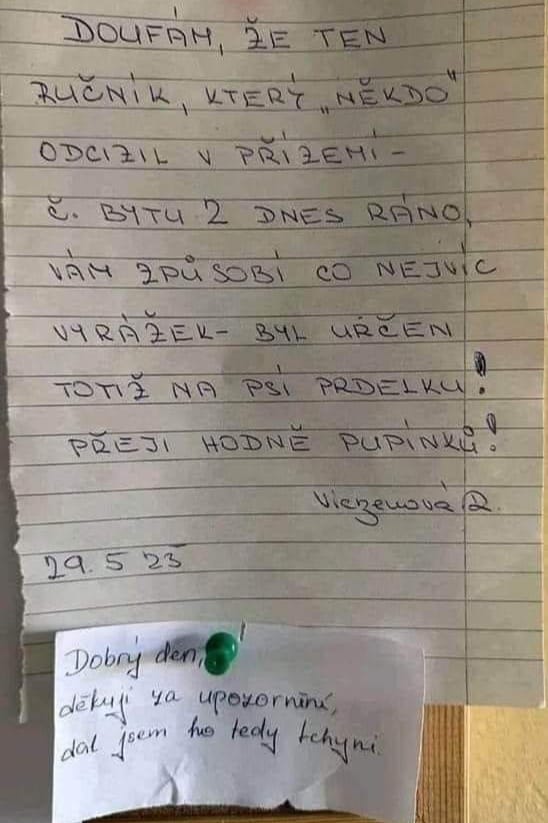 DOUFÁM, ŽE TEN
RUČNÍK, KTERÝ „NĚKDO"
ODCIZIL V PŘÍZEMÍ -
Č. BYTU 2 DNES RÁNO,
VÁM ZPŮSOBÍ CO NEJVÍC
VYRÁŽEK- BYL URČEN
TOTIŽ NA PSÍ PRDELKU!
PŘEJI HODNĚ PUPÍNKŮ!
29. 5 23
Dobrý den,
děkuji za upozornění,
dal jsem ho tedy tchyni.